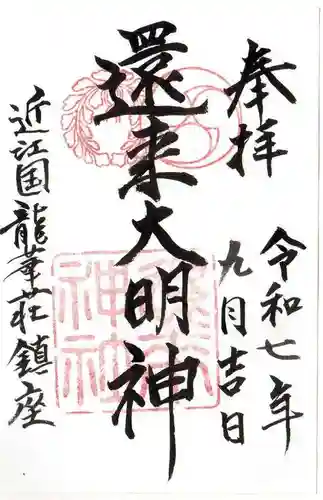 奉拝
令和七年
九月吉日
還来大明神
還来神社
近江国龍華荘鎮座